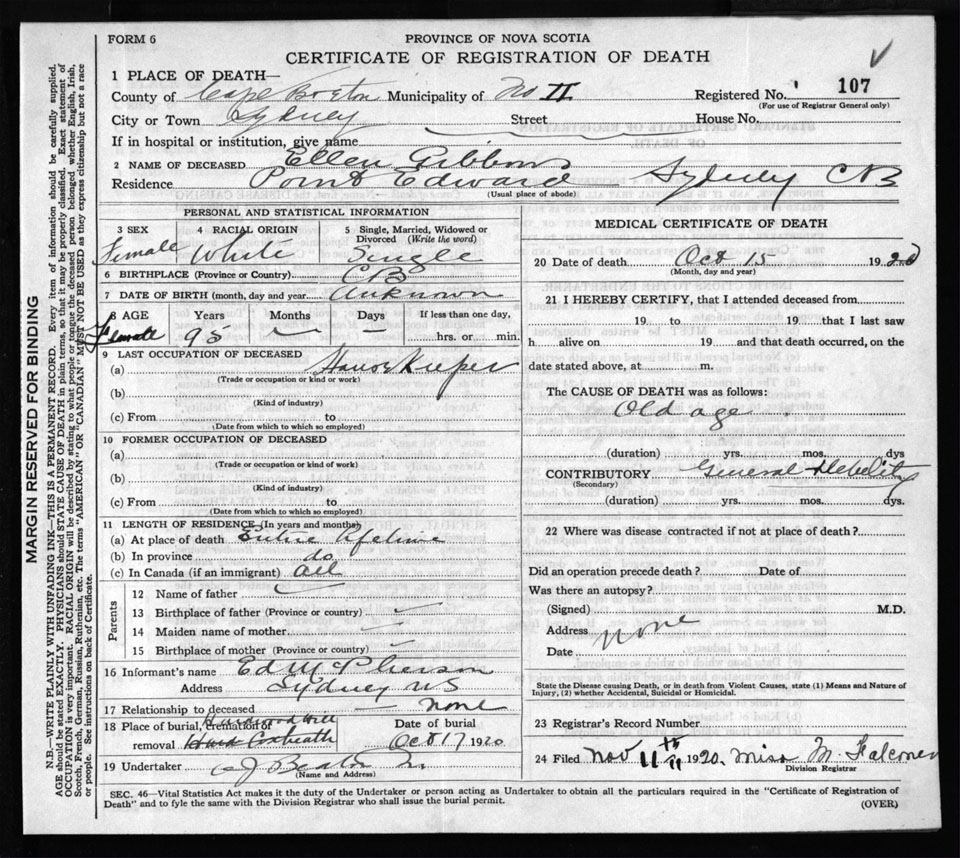 FORM 6
PROVINCE OF NOVA SCOTIA
CERTIFICATE OF REGISTRATION OF DEATH
1 PLACE OF DEATH—
County of Cape Breton Municipality of No II Registered No. 107
(For use of Registrar General only)
City or Town Sydney Street House No.
If in hospital or institution, give name
2 NAME OF DECEASED Ellen Gibbons
Residence Point Edward Sydney CB
(Usual place of abode)
PERSONAL AND STATISTICAL INFORMATION
3 SEX 4 RACIAL ORIGIN 5 Single, Married, Widowed or Divorced (Write the word)
Female White Single
6 BIRTHPLACE (Province or Country) CB
7 DATE OF BIRTH (month, day and year) Unknown
8 AGE Years Months Days If less than one day,
Female 95 — — hrs. or min.
9 LAST OCCUPATION OF DECEASED
(a) House Keeper
(Trade or occupation or kind or work)
(b)
(Kind of industry)
(c) From to
(Date from which to which so employed)
10 FORMER OCCUPATION OF DECEASED
(a)
(Trade or occupation or kind of work)
(b)
(Kind of industry)
(c) From to
(Date from which to which so employed)
11 LENGTH OF RESIDENCE (In years and months)
(a) At place of death Entire lifetime
(b) In province do
(c) In Canada (if an immigrant) all
Parents
12 Name of father
13 Birthplace of father (Province or country)
14 Maiden name of mother
15 Birthplace of mother (Province or country)
16 Informant's name Ed McPherson
Address Sydney NS
17 Relationship to deceased — none
18 Place of burial, cremation or Hardwood Hill
removal
Date of burial
Oct 17 1920
19 Undertaker A J Beaton
(Name and Address)
MEDICAL CERTIFICATE OF DEATH
20 Date of death Oct 15 1920
(Month, day and year)
21 I HEREBY CERTIFY, that I attended deceased from
19 to 19 that I last saw
h alive on 19 and that death occurred, on the
date stated above, at m.
The CAUSE OF DEATH was as follows:
Old age
(duration) yrs. mos. dys
CONTRIBUTORY General Debility
(Secondary)
(duration) yrs. mos. dys.
22 Where was disease contracted if not at place of death?
Did an operation precede death? Date of
Was there an autopsy?
(Signed) M.D.
Address none
Date
State the Disease causing Death, or in death from Violent Causes, state (1) Means and Nature of
Injury, (2) whether Accidental, Suicidal or Homicidal.
23 Registrar's Record Number
24 Filed Nov 11th 1920. Miss M Falconer
Division Registrar
SEC. 46—Vital Statistics Act makes it the duty of the Undertaker or person acting as Undertaker to obtain all the particulars required in the "Certificate of Registration of
Death" and to fyle the same with the Division Registrar who shall issue the burial permit.
(OVER)
MARGIN RESERVED FOR BINDING
N.B.—WRITE PLAINLY WITH UNFADING INK—THIS IS A PERMANENT RECORD. Every item of information should be carefully supplied.
AGE should be stated EXACTLY. PHYSICIANS should STATE CAUSE OF DEATH in plain terms, so that it may be properly classified. Exact statement of
OCCUPATION is very important. RACIAL ORIGIN will be described by stating to what people or tongue the deceased person belonged whether English, Irish,
Scotch, French, German, Russian, Ruthenian, etc. The terms "AMERICAN" OR "CANADIAN" MUST NOT BE USED as they express citizenship but not a race
or people. See instructions on back of Certificate.